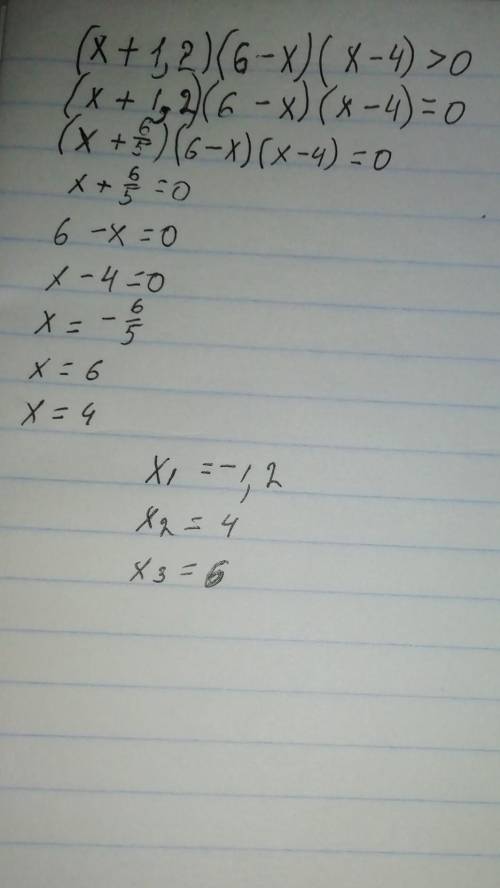 (x + 1,2)(6 - x)(x - 4) > 0
(x + 1,2)(6 - x)(x - 4) = 0
(x + 6/5)(6 - x)(x - 4) = 0
x + 6/5 = 0
6 - x = 0
x - 4 = 0
x = - 6/5
x = 6
x = 4
x₁ = -1,2
x₂ = 4
x₃ = 6